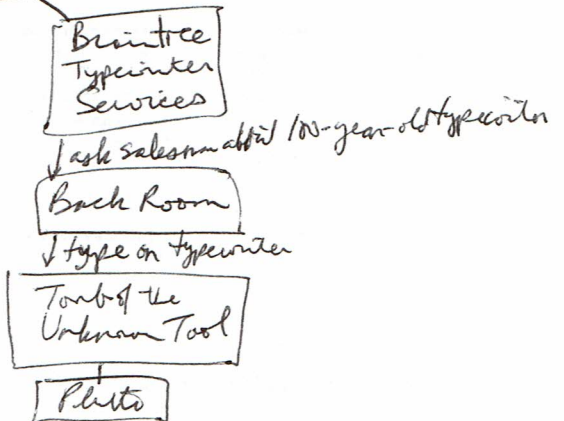 Braintree
Typewriter
Services
ask salesman about 100-year-old typewriter
Back Room
type on typewriter
Tomb of the
Unknown Tool
Pluto